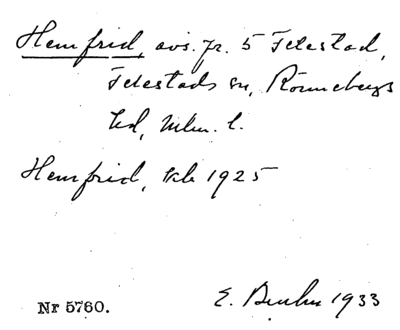 Hemfrid, avs. fr. 5 Felestad,
Felestads sn, Rönnebergs
hd, Mlm. l.
Hemfrid, kb 1925
E. 1933
Nr 5760.